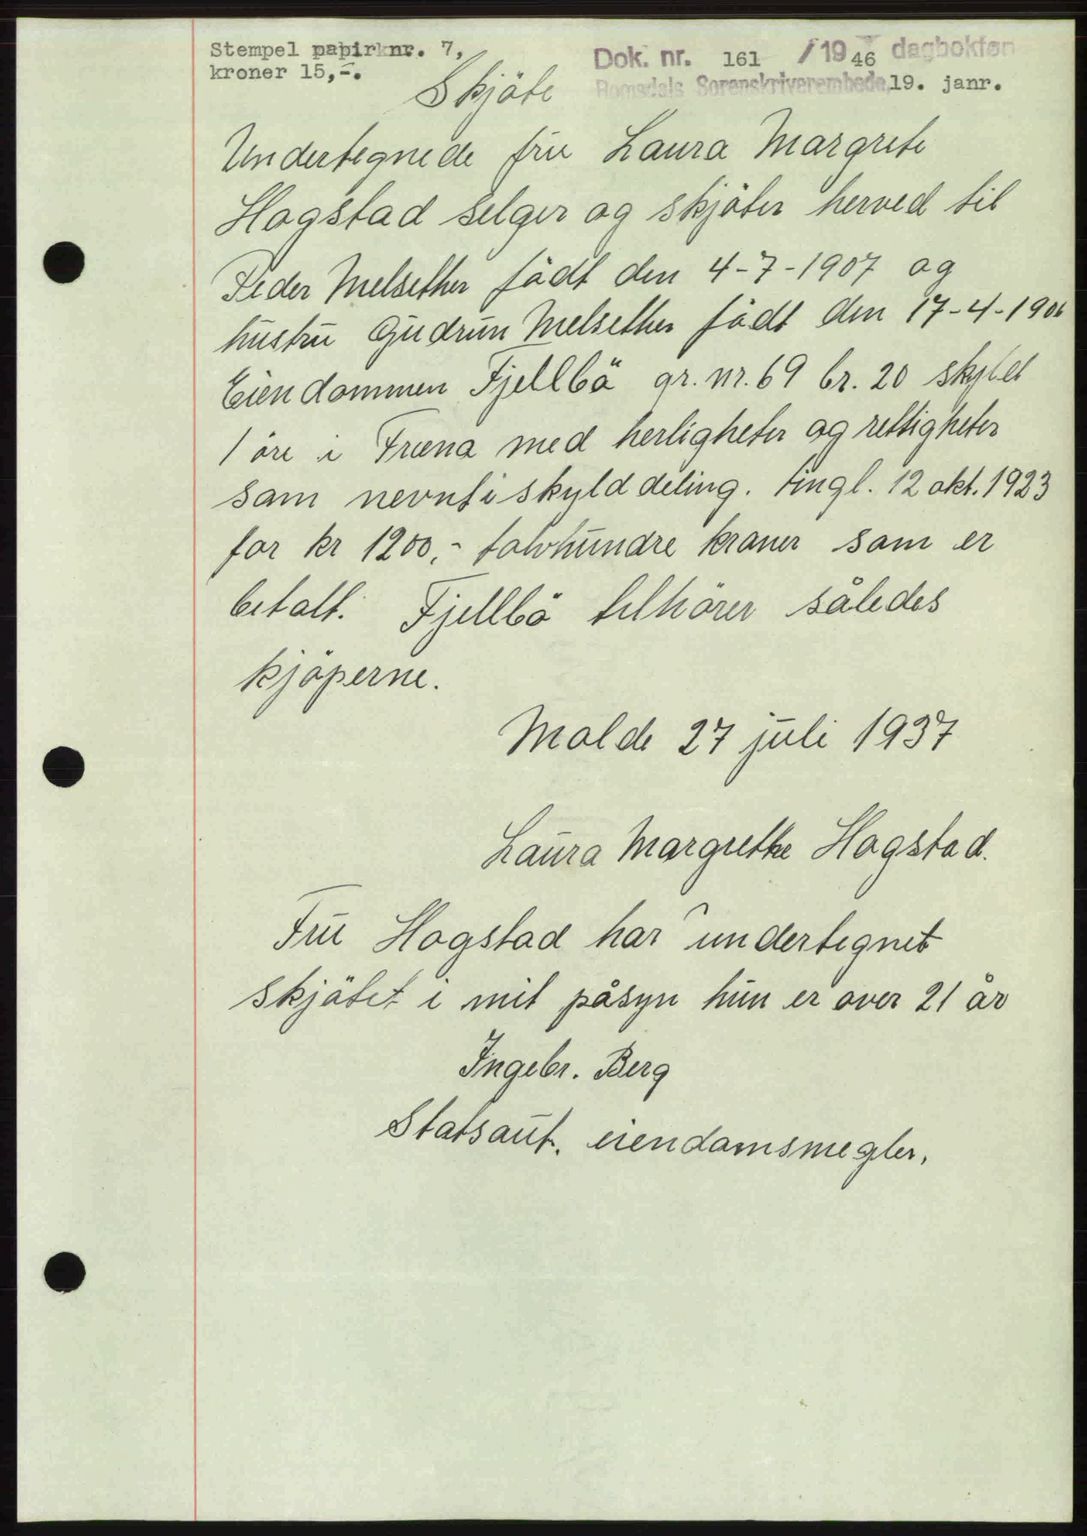 Stempel papirknr. 7,
kroner 15,-.
Dok. nr. 161 /1946 dagbokført
Romsdals Sorenskriverembede, 19. janr.
Skjöte
Undertegnede frü Laura Margrete
Hogstad selger og skjöter herved til
Peder Melsether födt den 4-7-1907 og
hüstrü Güdrün Melsether födt den 17-4-1906
Eiendommen Fjellbö gr. nr. 69 br. 20 skyld
1 öre i Fræna med herligheter og rettigheter
som nevnt i skylddeling. tingl. 12 okt. 1923
for kr 1200,- tolvhündre kroner som er
betalt. Fjellbö tilhörer således
kjöperne.
Molde 27 jüli 1937
Laüra Margrethe Hogstad.
Frü Hogstad har undertegnet
skjötet i mit påsyn hün er over 21 år
Ingebr. Berg
Statsaüt. eiendomsmegler.